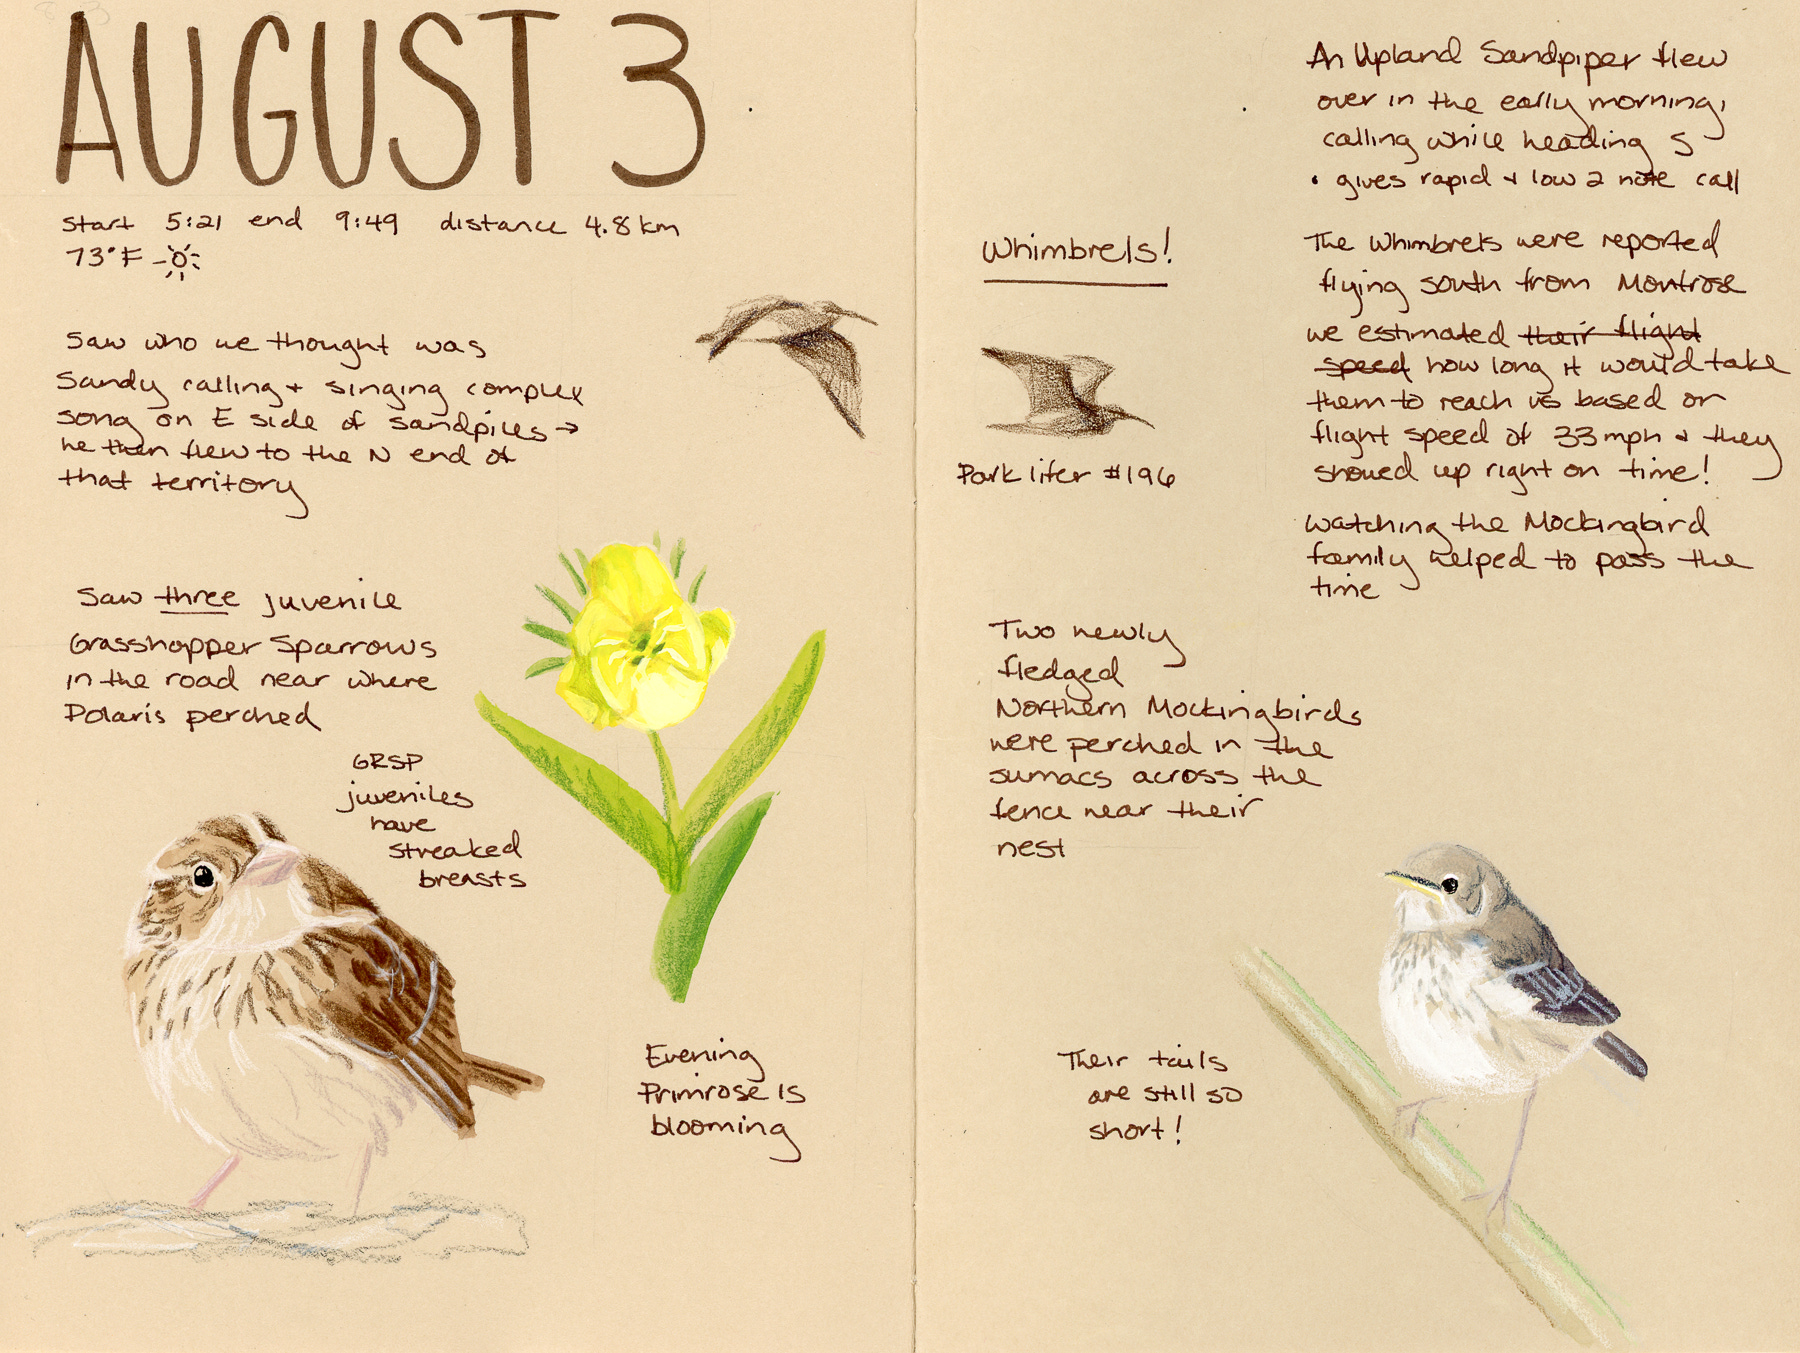 AUGUST 3
start 5:21 end 9:49 distance 4.8 km
73°F
Saw who we thought was
Sandy calling + singing complex
song on E side of sandpiles →
he then flew to the N end of
that territory
Saw three juvenile
Grasshopper Sparrows
in the road near where
Polaris perched
GRSP
juveniles
have
streaked
breasts
Evening
Primrose is
blooming
Whimbrels!
Park lifer #196
An Upland Sandpiper flew
over in the early morning,
calling while heading S
• gives rapid + low 2 note call
The Whimbrels were reported
flying south from Montrose
we estimated their flight
speed how long it would take
them to reach us based on
flight speed of 33 mph + they
showed up right on time!
Watching the Mockingbird
family helped to pass the
time
Two newly
fledged
Northern Mockingbirds
were perched in the
sumacs across the
fence near their
nest
Their tails
are still so
short!